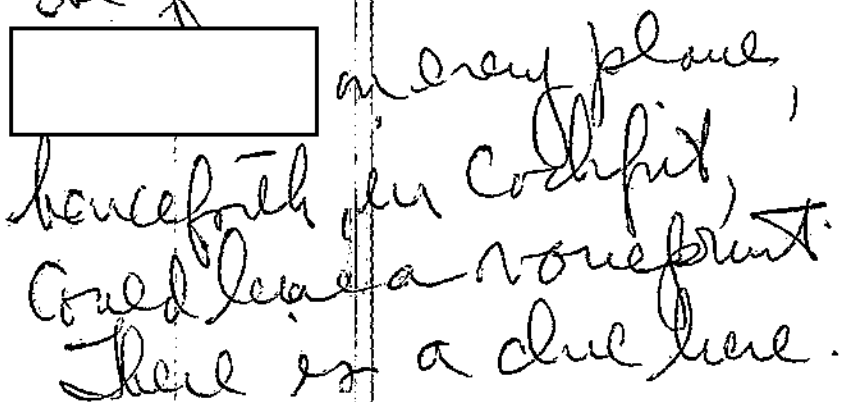 on every plane,
henceforth in cockpit,
Could leave a voiceprint.
There is a clue here.